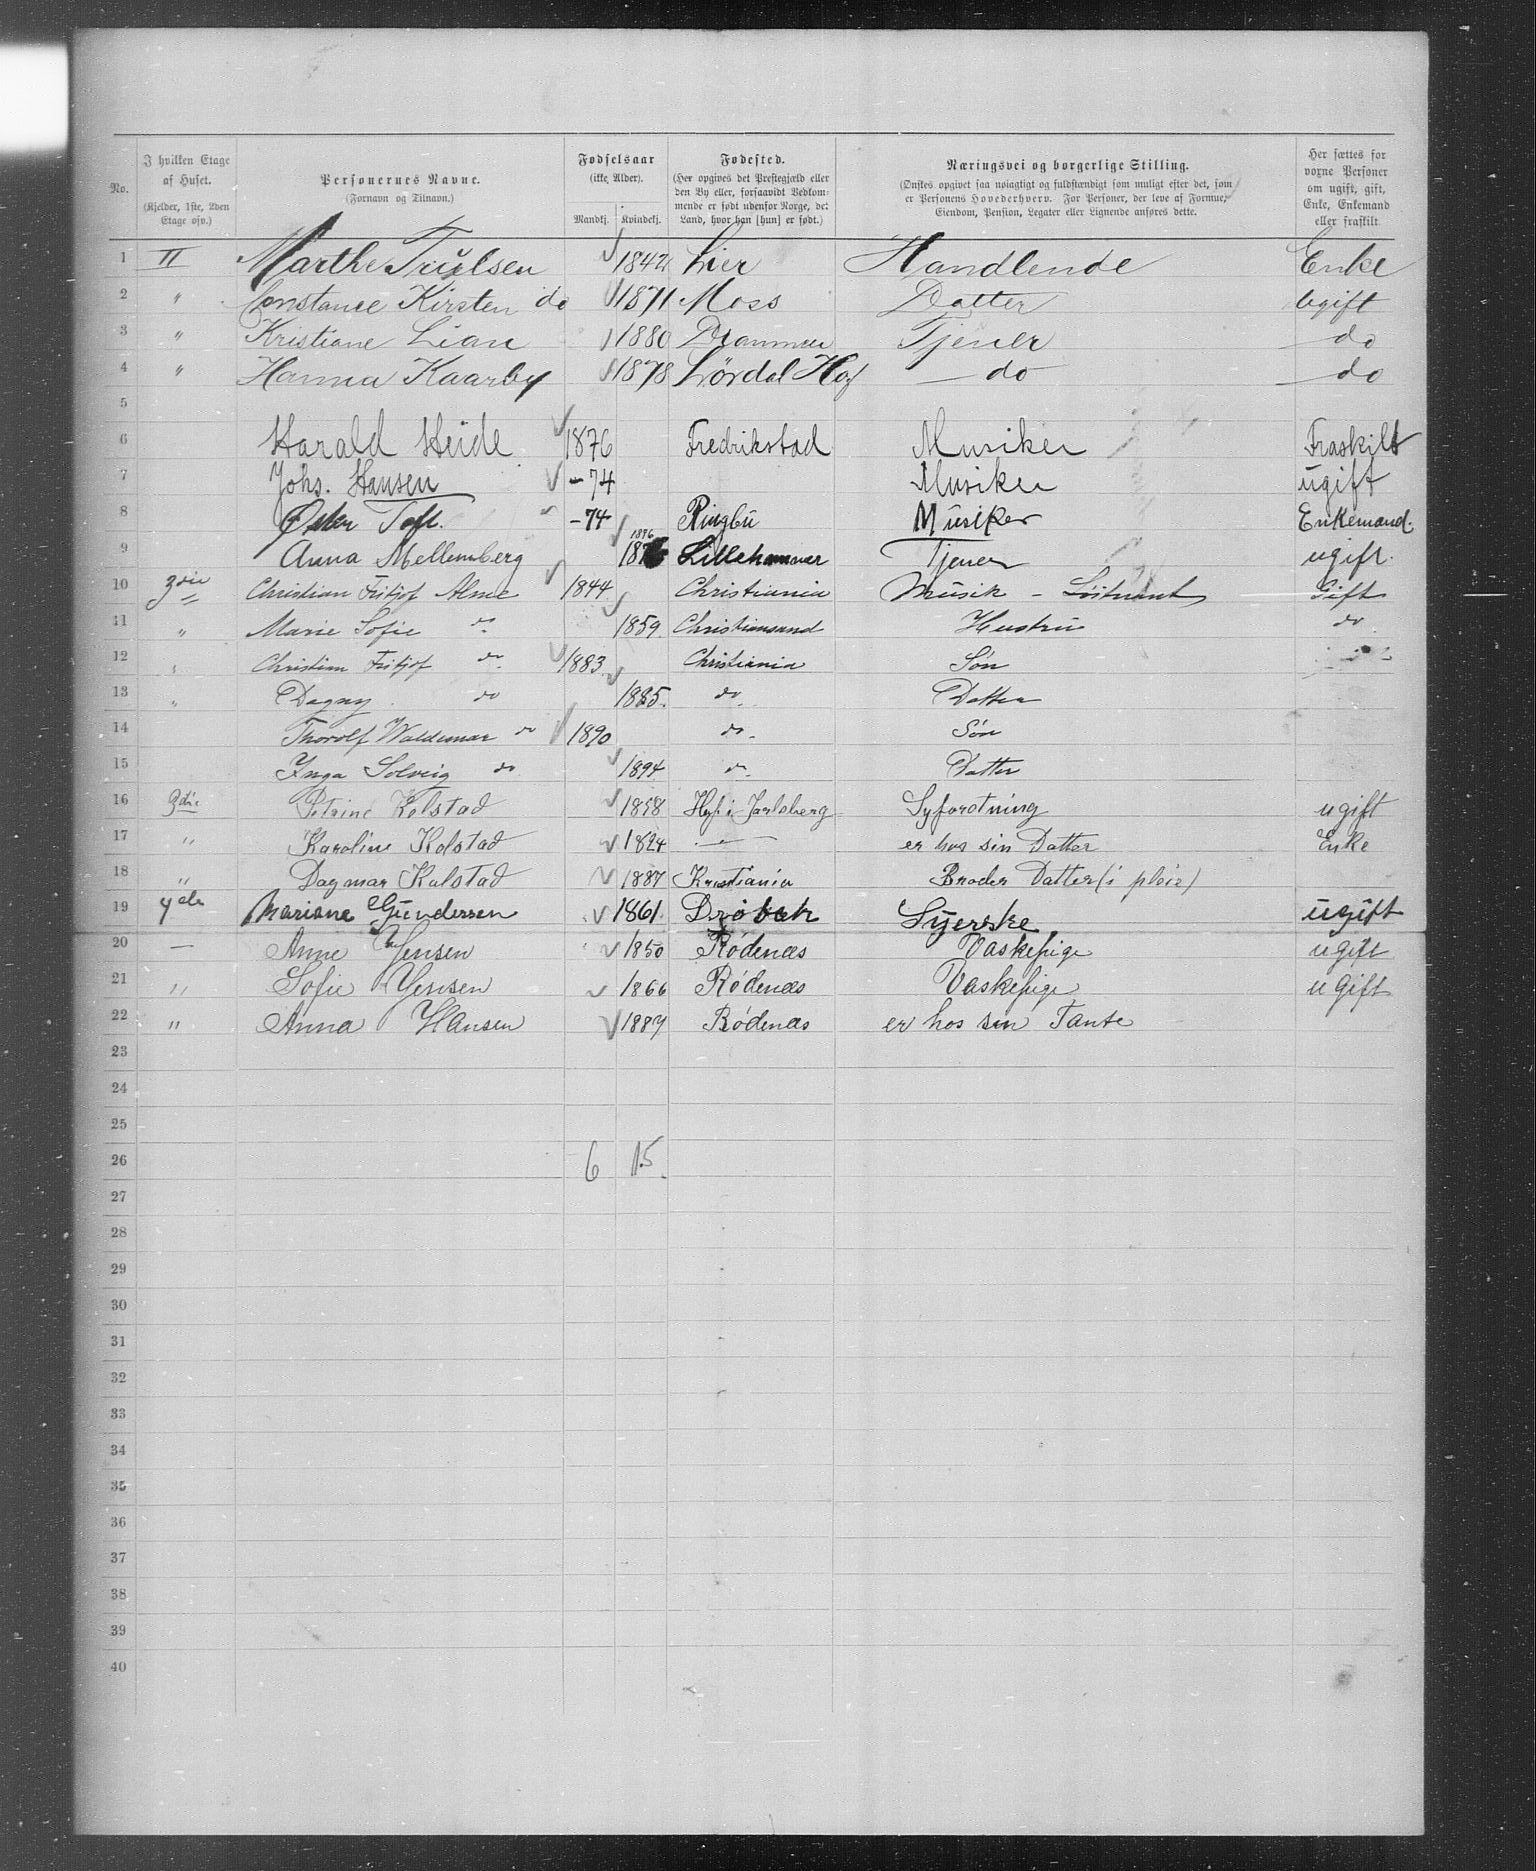 No.
I hvilken Etage af Huset. (Kjelder, 1ste, 2den Etage osv.)
Personernes Navne. (Fornavn og Tilnavn.)
Fødselsaar (ikke Alder). Mandkj. Kvindekj.
Fødested. (Her opgives det Prestegjæld eller den By eller, forsaavidt Vedkommende er født udenfor Norge, det Land, hvor han [hun] er født.)
Næringsvei og borgerlige Stilling. (Ønskes opgivet saa nøiagtigt og fuldstændigt som muligt efter det, som er Personens Hovederhverv. For Personer, der leve af Formue, Eiendom, Pension, Legater eller Lignende anføres dette.
Her sættes for voxne Personer om ugift, gift, Enke, Enkemand eller fraskilt
1 II Marthe Trulsen 1842 Lier Handlende Enke
2 " Constance Kirsten do 1871 Moss Datter Ugift
3 " Kristiane Lian 1880 Drammen Tjener do
4 " Hanna Kaarby 1878 Lørdal Hof do do
5
6 Harald Heide 1876 Fredrikstad Musiker Fraskilt
7 Johs. Hansen -74 Musiker ugift
8 Oskar Toft. -74 Ringbu Musiker Enkemand.
9 Anna Mellemberg 1876 Lillehammer Tjener ugift.
10 3die Christian Fritjof Alme 1844 Christiania Musik - Løitnant Gift
11 " Marie Sofie do 1859. Christiansand Hustru do
12 " Christian Fritjof do 1883. Christiania Søn
13 " Dagny do 1885. do Datter
14 Thorolf Waldemar do 1890 do. Søn
15 Inga Solveig do 1894 do Datter
16 3die Petrine Kolstad 1858 Hof i Jarlsberg Syforetning ugift
17 " Karoline Kolstad 1824 — " — er hos sin Datter Enke
18 " Dagmar Kolstad 1887 Kristiania Broder Datter (i pleie)
19 4de Mariane Gundersen 1861. Drøbak Syerske ugift
20 — Anne Jensen 1850 Rødenæs Vaskepige ugift
21 " Sofie Jensen 1866 Rødenæs Vaskepige ugift
22 " Anna Hansen 1887 Rødenæs er hos sin Tante
23
24
25
26 6 15.
27
28
29
30
31
32
33
34
35
36
37
38
39
40